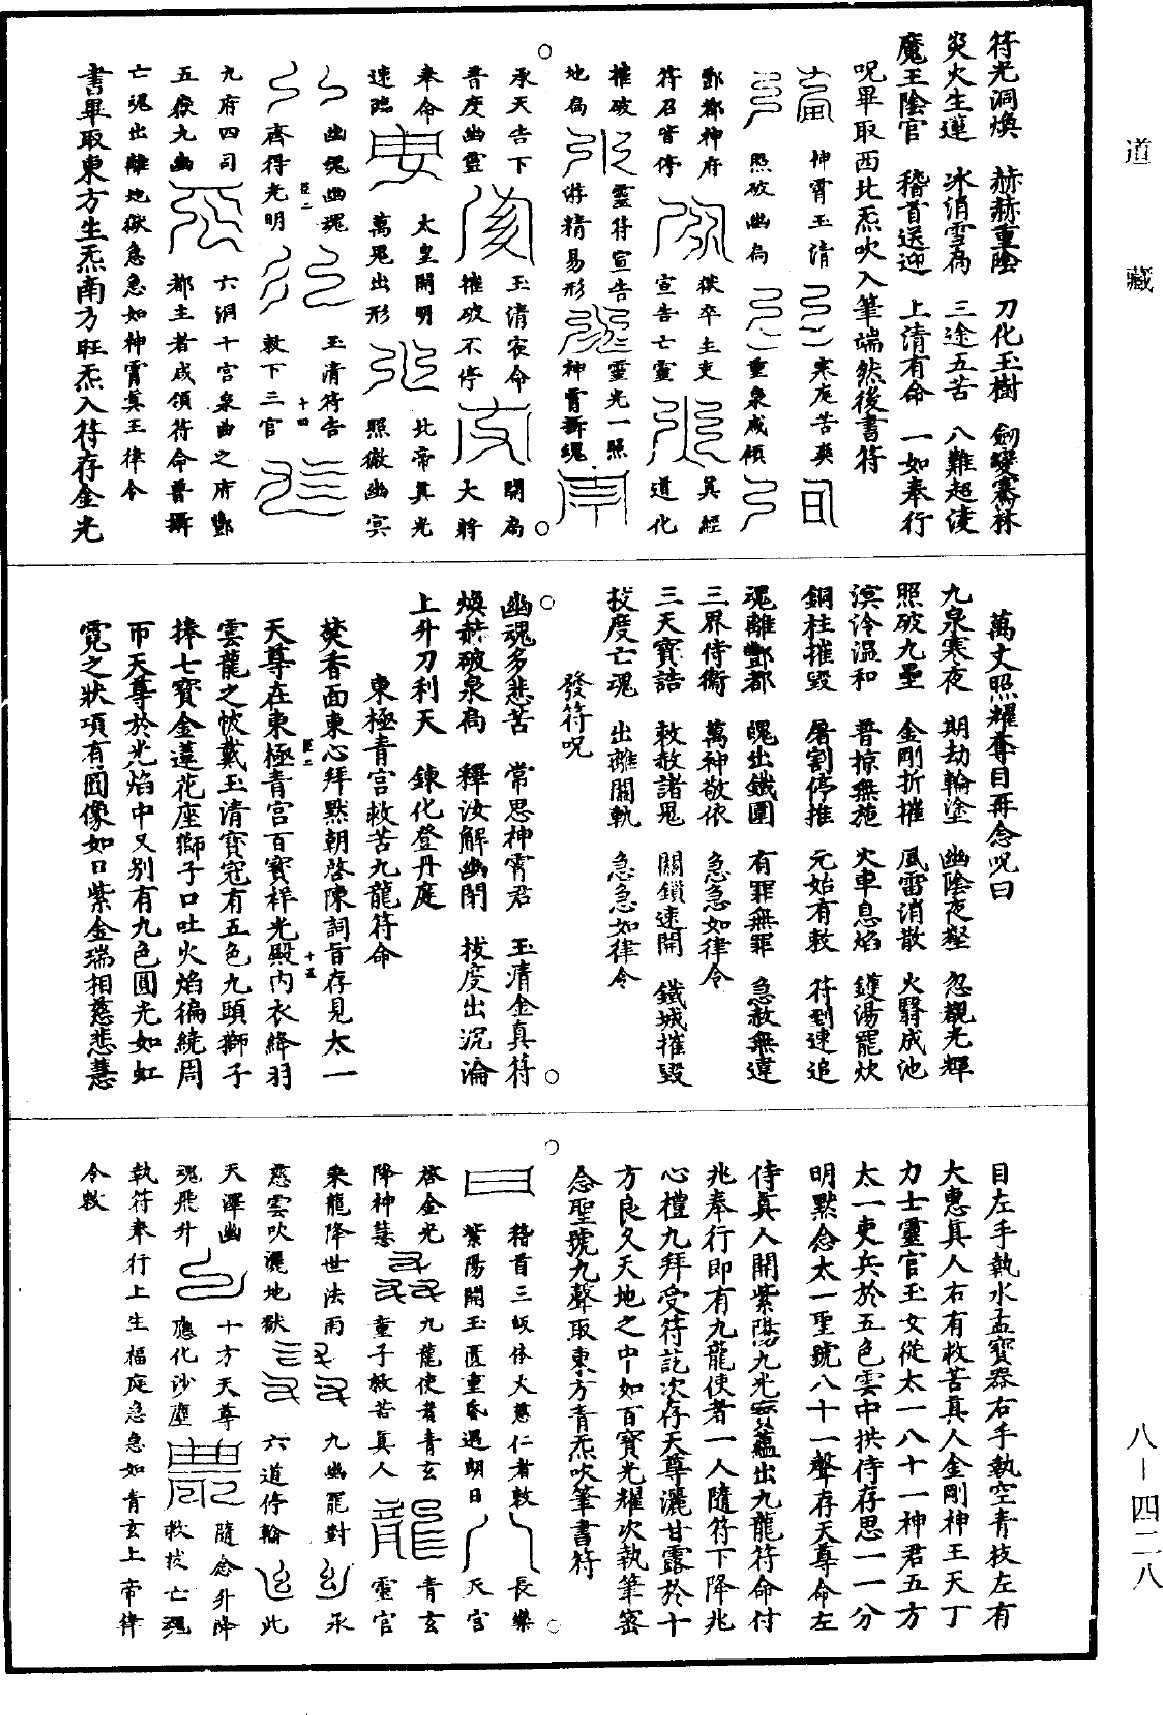 道藏
八—四二八
符光洞煥　赫赫重陰　刀化玉樹　劒變騫林
炎火生蓮　冰消雪為　三途五苦　八難超淩
魔王陰官　稽首送迎　上清有命　一如奉行
呪畢取西北炁吹入筆端然後書符
神霄玉清　寒庭苦爽
照破幽扃　重泉咸傾
酆都神府　獄卒主吏　其經
符召皆停　宣告亡靈　道化
摧破　靈符宣告　靈光一照
地扃　游精易形　神霄攝魂
承天告下　玉清宸命　開扃
普度幽靈　摧破不停　大將
奉命　太皇開明　北帝真光
速臨　萬鬼出形　照徹幽冥
幽魂幽魂　玉清符告
齊得光明　敕下三官
九府四司　六洞十宮泉曲之府酆
五嶽九幽　都主者咸領符命普攝
亡魂出離地獄急急如神霄真王律令
書畢取東方生炁南方旺炁入符存金光
萬丈照耀奪目再念呪曰
九泉寒夜　期劫輪塗　幽陰夜壑　忽覩光輝
照破九壘　金剛折摧　風雷消散　火翳成池
溟泠溫和　普掠無施　火車息焰　鑊湯罷炊
銅柱摧毀　屠割停推　元始有敕　符到速追
魂離酆都　魄出鐵圍　有罪無罪　急赦無違
三界侍衞　萬神敬依　急急如律令
三天寶誥　敕赦諸鬼　關鎖速開　鐵城摧毀
拔度亡魂　出離關軌　急急如律令
發符呪
幽魂多悲苦　常思神霄君　玉清金真符
煥赫破泉扃　釋汝解幽閉　拔度出沉淪
上升刀利天　鍊化登丹庭
東極青宮救苦九龍符命
焚香面東心拜默朝啓陳詞旨存見太一
天尊在東極青宮百寶祥光殿內衣絳羽
雲龍之帔戴玉清寶冠有五色九頭獅子
捧七寶金蓮花座獅子口吐火焰徧繞周
帀天尊於光焰中又別有九色圓光如虹
霓之狀項有圓像如日紫金瑞相慈悲慧
目左手執水盂寶器右手執空青枝左有
大惠真人右有救苦真人金剛神王天丁
力士靈官玉女從太一八十一神君五方
太一吏兵於五色雲中拱侍存思一一分
明默念太一聖號八十一聲存天尊命左
侍真人開紫陽九光雲蘊出九龍符命付
兆奉行即有九龍使者一人隨符下降兆
心禮九拜受符訖次存天尊灑甘露於十
方良久天地之中如百寶光耀次執筆密
念聖號九聲取東方青炁吹筆書符
稽首三皈依大慈仁者敕　長樂
紫陽開玉匱重昏遇朗日　天宮
啓金光　九龍使者青玄　青玄
降神慧　童子救苦真人　靈官
乘龍降世法雨　九幽罷對　承
慈雲吹灑地獄　六道停輪　此
天澤幽　十方天尊　隨念升降
魂飛升　應化沙塵　救拔亡魂
執符奉行上生福庭急急如青玄上帝律
令敕